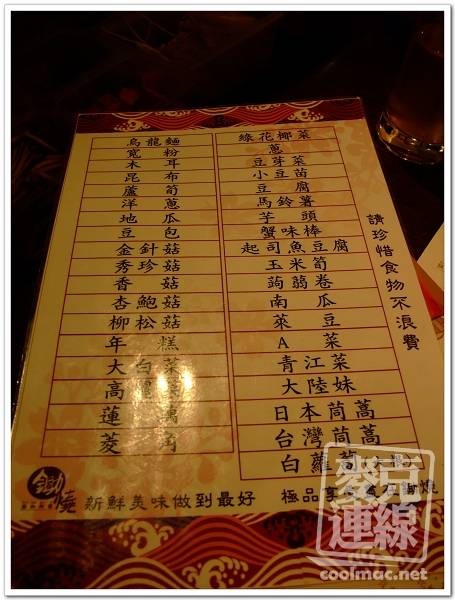 烏龍麵
寬粉
木耳
昆布
蘆筍
洋蔥
地瓜
豆包
金針菇
秀珍菇
香菇
杏鮑菇
柳松菇
年糕
大白菜
高麗菜
蓮藕
菱角
綠花椰菜
蔥
豆芽菜
小豆苗
豆腐
馬鈴薯
芋頭
蟹味棒
起司魚豆腐
玉米筍
蒟蒻卷
南瓜
萊豆
A菜
青江菜
大陸妹
日本茼蒿
台灣茼蒿
白蘿蔔
請珍惜食物不浪費
鋤燒
新鮮美味做到最好
極品享受
連線
coolmac.net